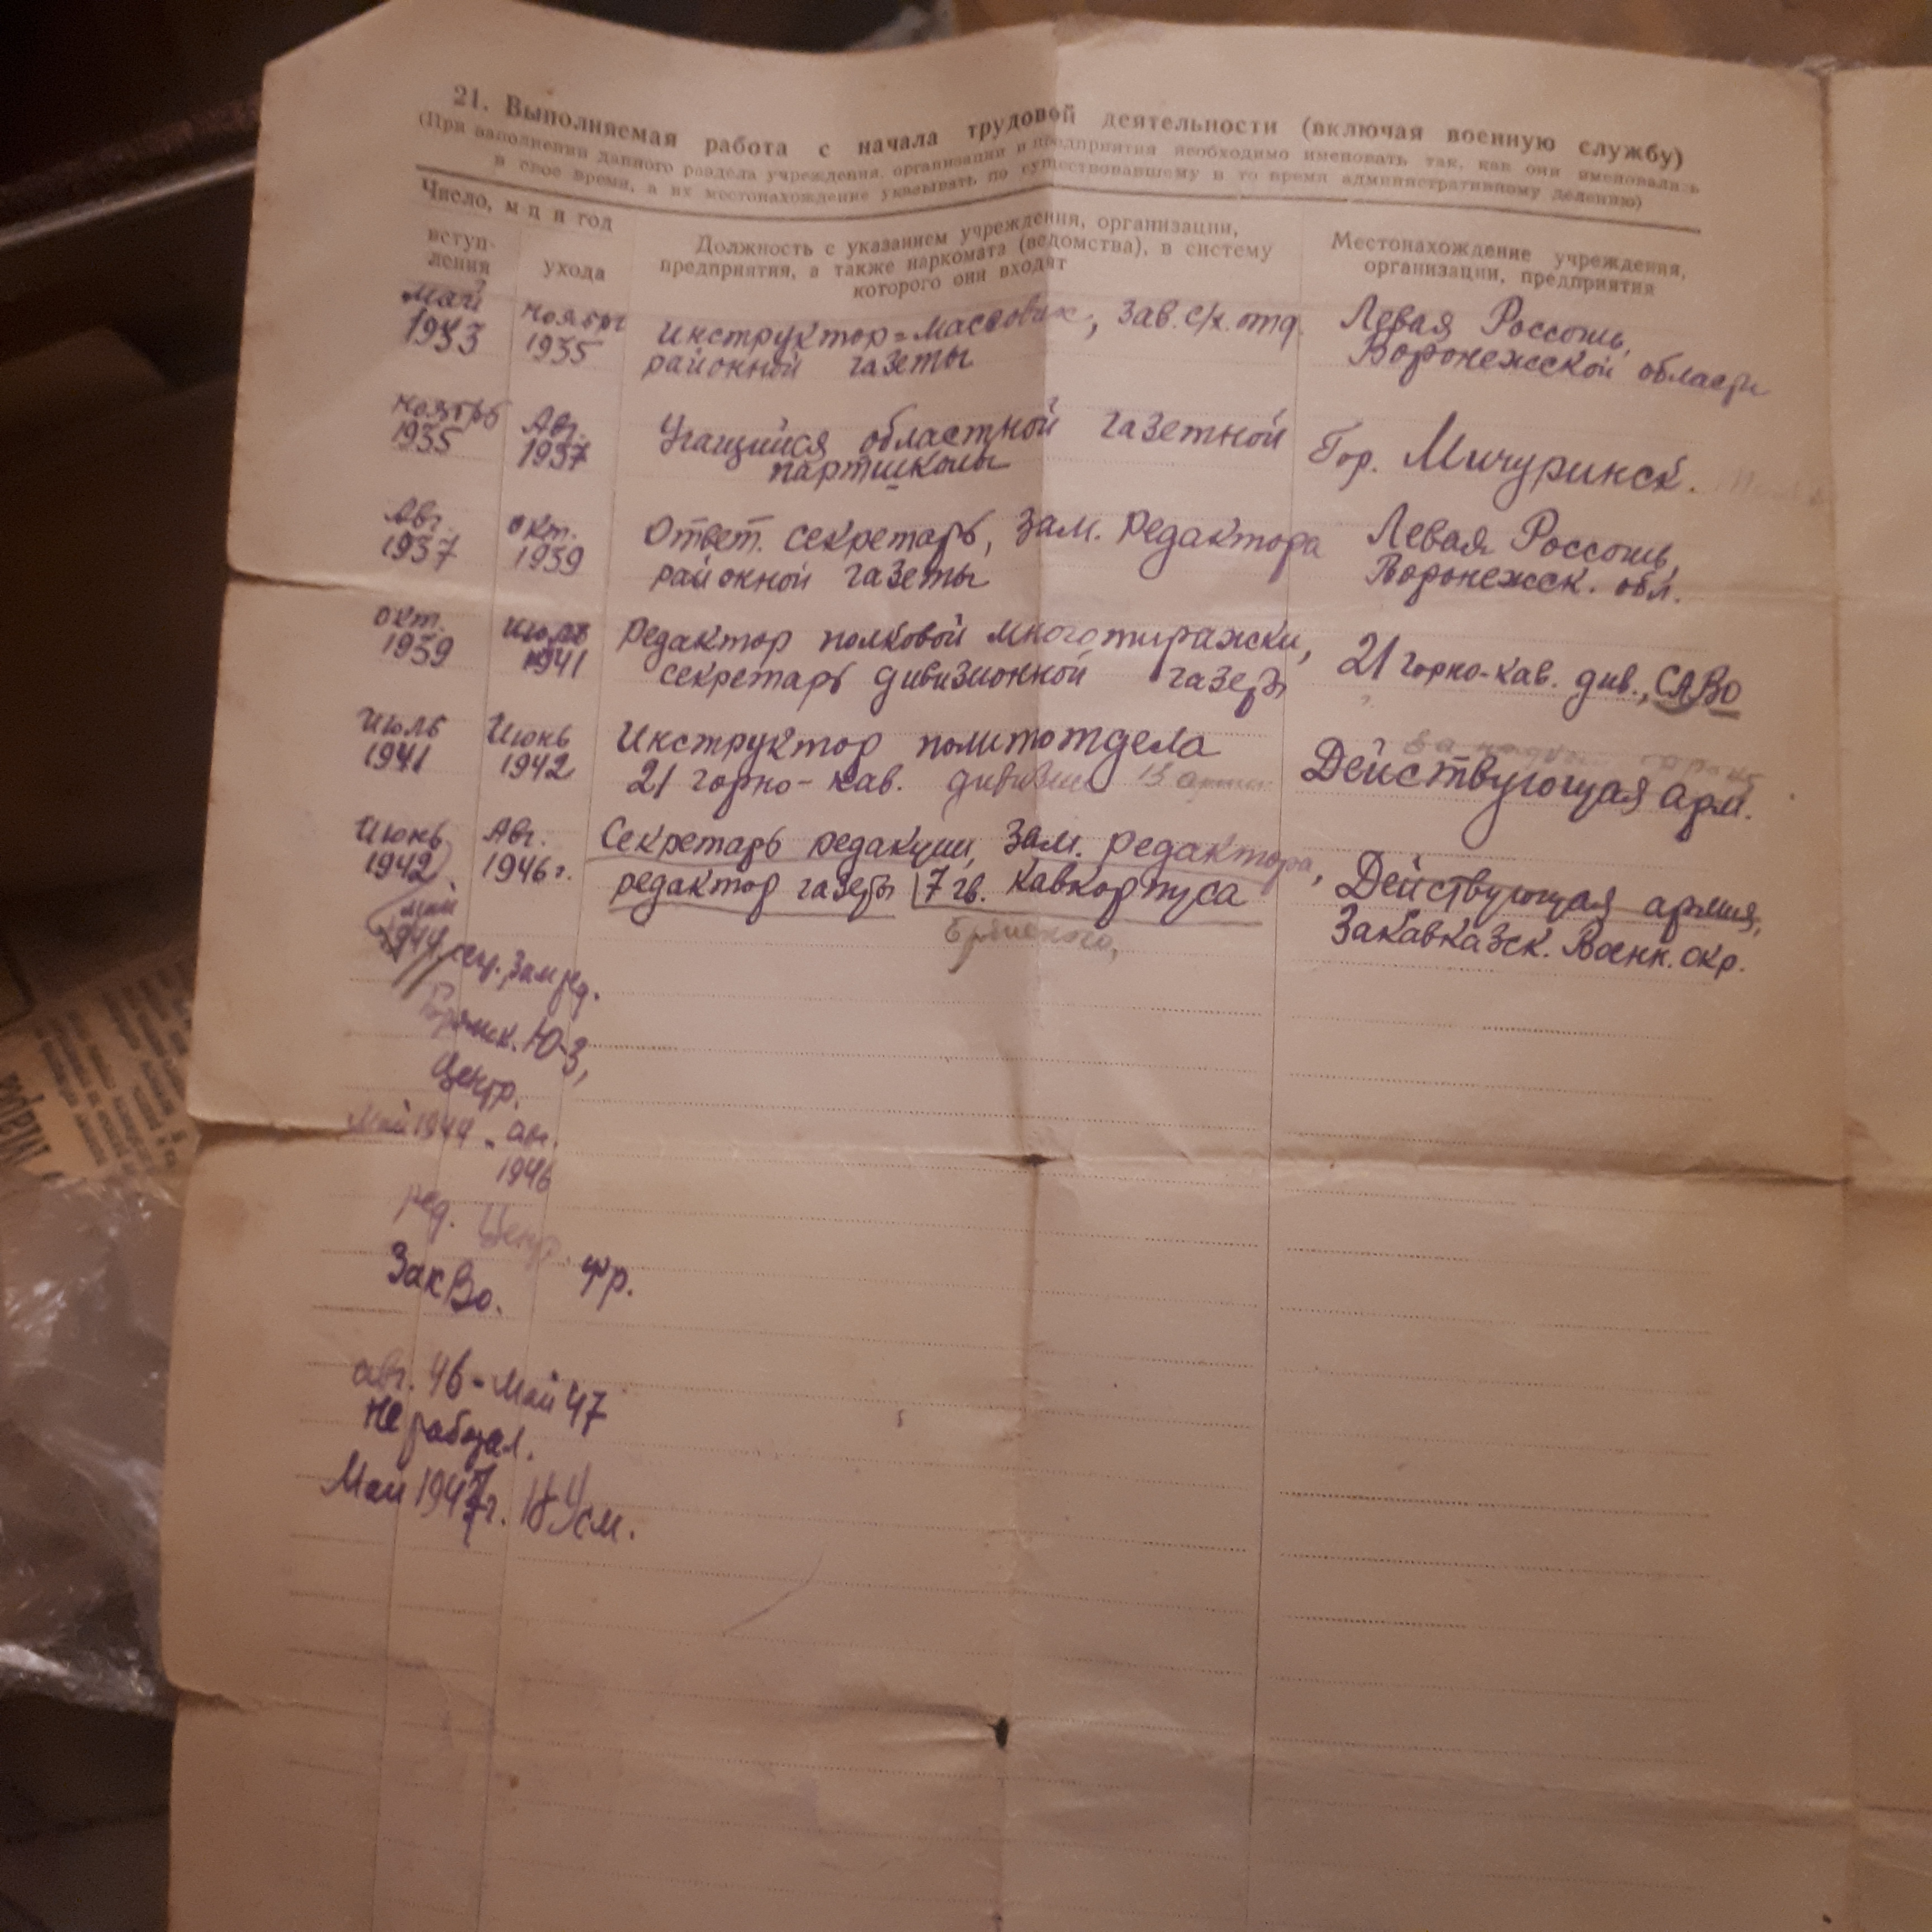 21. Выполняемая работа с начала трудовой деятельности (включая военную службу)
(При заполнении данного раздела учреждения, организации и предприятия необходимо именовать так, как они именовались
в свое время, а их местонахождение указывать по существовавшему в то время административному делению)
Число, м-ц и год
вступления
ухода
Должность с указанием учреждения, организации,
предприятия, а также наркомата (ведомства), в систему
которого они входят
Местонахождение учреждения,
организации, предприятия
Май 1933
ноябрь 1935
Инструктор-массовик, зав. с/х. отд.
районной газеты
Левая Россошь,
Воронежской области
ноябрь 1935
Авг. 1937
Учащийся областной газетной
партшколы
Гор. Мичуринск.
Авг. 1937
окт. 1939
Ответ. секретарь, зам. редактора
районной газеты
Левая Россошь,
Воронежск. обл.
окт. 1939
Июль 1941
Редактор полковой многотиражки,
секретарь дивизионной газеты
21 горно-кав. див., САВО
Июль 1941
Июнь 1942
Инструктор политотдела
21 горно-кав. дивизии 13 армии
Действующая арм.
Июнь 1942
Авг. 1946 г.
Секретарь редакции, зам. редактора,
редактор газеты 7 гв. кавкорпуса
Брянского,
Действующая армия,
Закавказск. Военн. окр.
май
1944, секр. зам ред.
Брянск. Ю-З,
Центр.
Май 1944 - авг.
1946
ред. Центр. фр.
ЗакВо.
авг. 46 - май 47
не работал.
Май 1947 г.